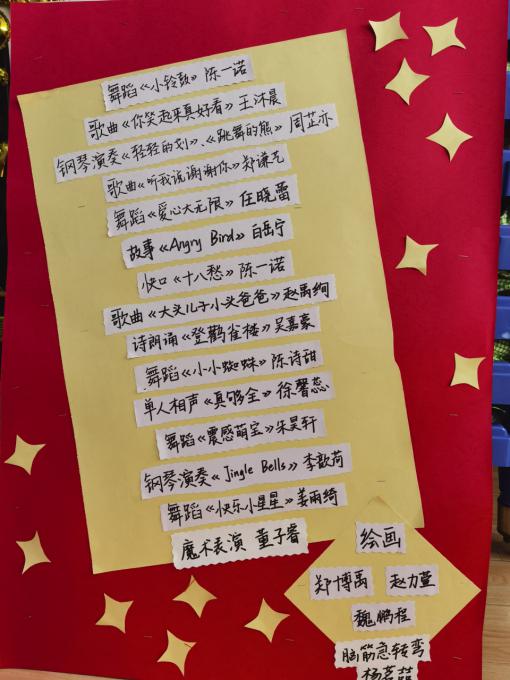 舞蹈《小铃鼓》陈一诺
歌曲《你笑起来真好看》王沐晨
钢琴演奏《轻轻的划》、《跳舞的熊》周芷亦
歌曲《听我说谢谢你》郑谦艺
舞蹈《爱心大无限》任晓蕾
故事《Angry Bird》白岳宁
快口《十八愁》陈一诺
歌曲《大头儿子小头爸爸》赵禹绚
诗朗诵《登鹳雀楼》吴嘉豪
舞蹈《小小蜘蛛》陈诗甜
单人相声《真够全》徐馨蕊
舞蹈《震感萌宝》朱昊轩
钢琴演奏《Jingle Bells》李歆荷
舞蹈《快乐小星星》姜雨绮
魔术表演 董子睿
绘画
郑博禹 赵力萱
魏鹏程
脑筋急转弯
杨茗